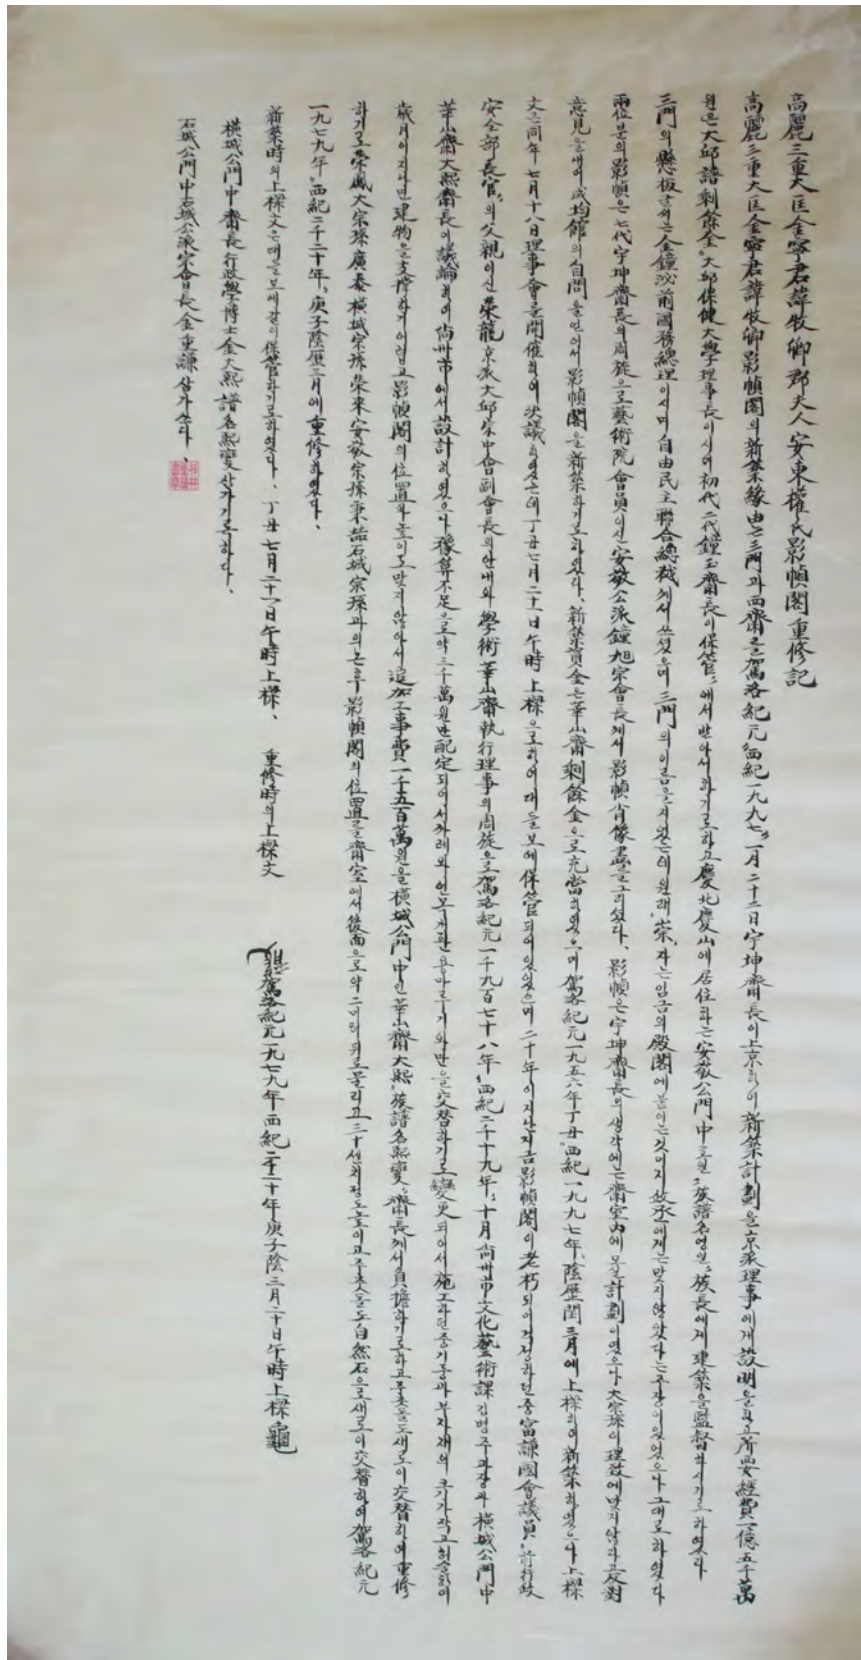 高麗三重大匡金寧君諱牧卿郡夫人安東權氏影幀閣重修記
高麗三重大匡金寧君諱牧卿影幀閣의 新築緣由는 三門과 西齋를 駕洛紀元 西紀一九九七, 一月二十二日 宇坤齋長이 上京하여 新築計劃을 京派理事에게 說明을 하고 所要經費 一億五千萬
원은 大邱譜剩餘金, 大邱保健大學理事長이시여 初代二代 鐘玉齋長이 保管, 에서 받아서 하기로 하고 慶北慶山에 居住하는 安敬公門中 族譜名 영원, 族長에게 建築을 監督하시기로 하였다
三門의 懸板글씨는 金鐘泌前國務總理이시며 自由民主聯合總裁께서 쓰셨으며 三門의 이름을 지었는데 원래, 崇, 자는 임금의 殿閣에 붙이는 것이지 에게는 맞지 않았다는 주장이 있었으나 그대로 하였다
兩位분의 影幀은 七代宇坤齋長의 周旋으로 藝術院會員이신 安敬公派鐘旭宗會長께서 影幀肖像畵를 그리셨다、影幀은 宇坤齋長의 생각에는 齋室內에 모실 計劃이였으나 大宗孫이 理致에 맞지 않다고 反對
意見을 내여 成均館의 自問을 얻어서 影幀閣을 新築하기로 하였다、新築資金은 華山齋剩餘金으로 充當하였으며 駕洛紀元一九五六年丁丑, 西紀一九九七年, 陰歷閏三月에 上樑하여 新築하였으나 上樑
文은 同年七月十八日理事會를 開催하여 決議하였는데 丁丑七月二十一日午時上樑으로 하여 대들보에 保管되어 있었으며 二十年이 지난 지금 影幀閣이 老朽되어 걱정하던 중 富謙國會議員, 前行政
安全部長官, 의 父親이신 榮龍京派大邱宗中會副會長의 안내와 學術華山齋執行理事의 周旋으로 駕洛紀元一千九百七十八年, 西紀二千十九年, 十月尙州市文化藝術課 김병주과장과 橫城公門中
華山齋大熙齋長이 議論하여 尙州市에서 設計하였으나 豫算不足으로 약 三千萬원만 配定되어 서까래와 용마루기와만을 交替하기로 變更되어서 施工하던 중 기둥과 부자재의 크기가 작고 허술하여
歲月이 지나면 建物을 支撐하기 어렵고 影幀閣의 位置와 높이도 맞지 않아서 追加工事費一千五百萬원을 橫城公門中인 華山齋大熙, 族譜名熙燮, 齋長께서 負擔하기로 하고 주춧돌도 새로이 交替하여 重修
하기로 榮鳳大宗孫 廣泰橫城宗孫 榮來安敬宗孫 秉喆石城宗孫과 의논 후 影幀閣의 位置를 齋室에서 後面으로 약 二미터 뒤로 물리고 三十센치정도 높이고 주춧돌도 自然石으로 새로이 交替하여 駕洛紀元
一九七九年, 西紀二千二十年, 庚子陰歷三月에 重修하였다、
新築時의 上樑文은 대들보에 같이 保管하기로 하였다、丁丑七月二十一日午時上樑、 重修時의 上樑文 龍駕洛紀元一九七九年西紀二千二十年庚子陰三月二十日午時上樑龜
橫城公門中齋長行政學博士金大熙譜名熙燮삼가 기록하다、
石城公門中石城公派宗會長金重謙삼가 쓰다、